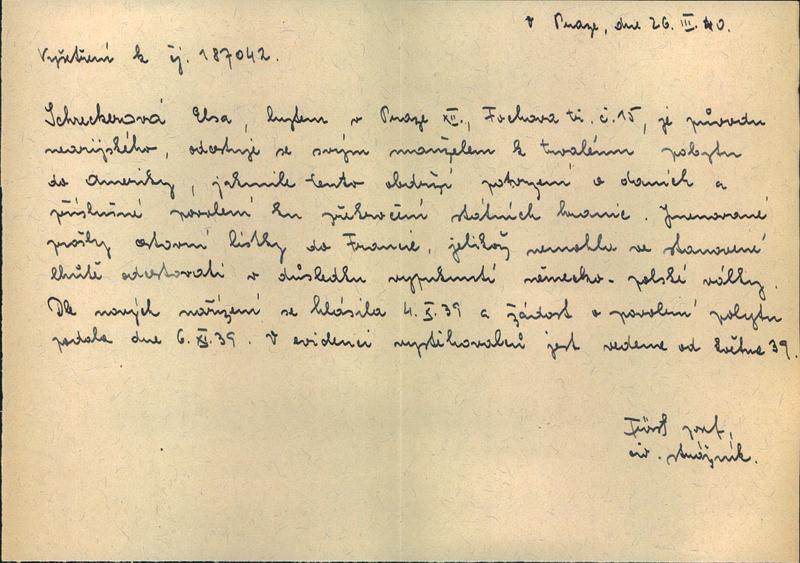 v Praze, dne 26.III.40.
Vyšetření k čj. 187042.
Schreckerová Elsa, bytem v Praze XII., Fochova tř. č. 15, je původu
nearijského, odcestuje se svým manželem k trvalému pobytu
do Ameriky, jakmile tento obdrží potvrzení o daních a
příslušné povolení ku překročení státních hranic. Jmenované
prošly cestovní lístky do Francie, jelikož nemohla ve stanovené
lhůtě odcestovati v důsledku vypuknutí německo-polské války.
Dle nových nařízení se hlásila 4.X.39 a žádost o povolení pobytu
podala dne 6.XI.39. V evidenci vystěhovalců jest vedena od května 39.
Fürst Josef,
civ. strážník.